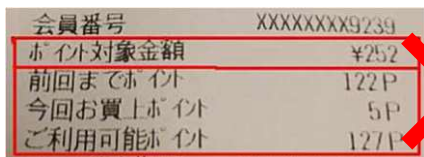 会員番号 XXXXXXXX9239
ポイント対象金額 ¥252
前回までポイント 122P
今回お買上ポイント 5P
ご利用可能ポイント 127P